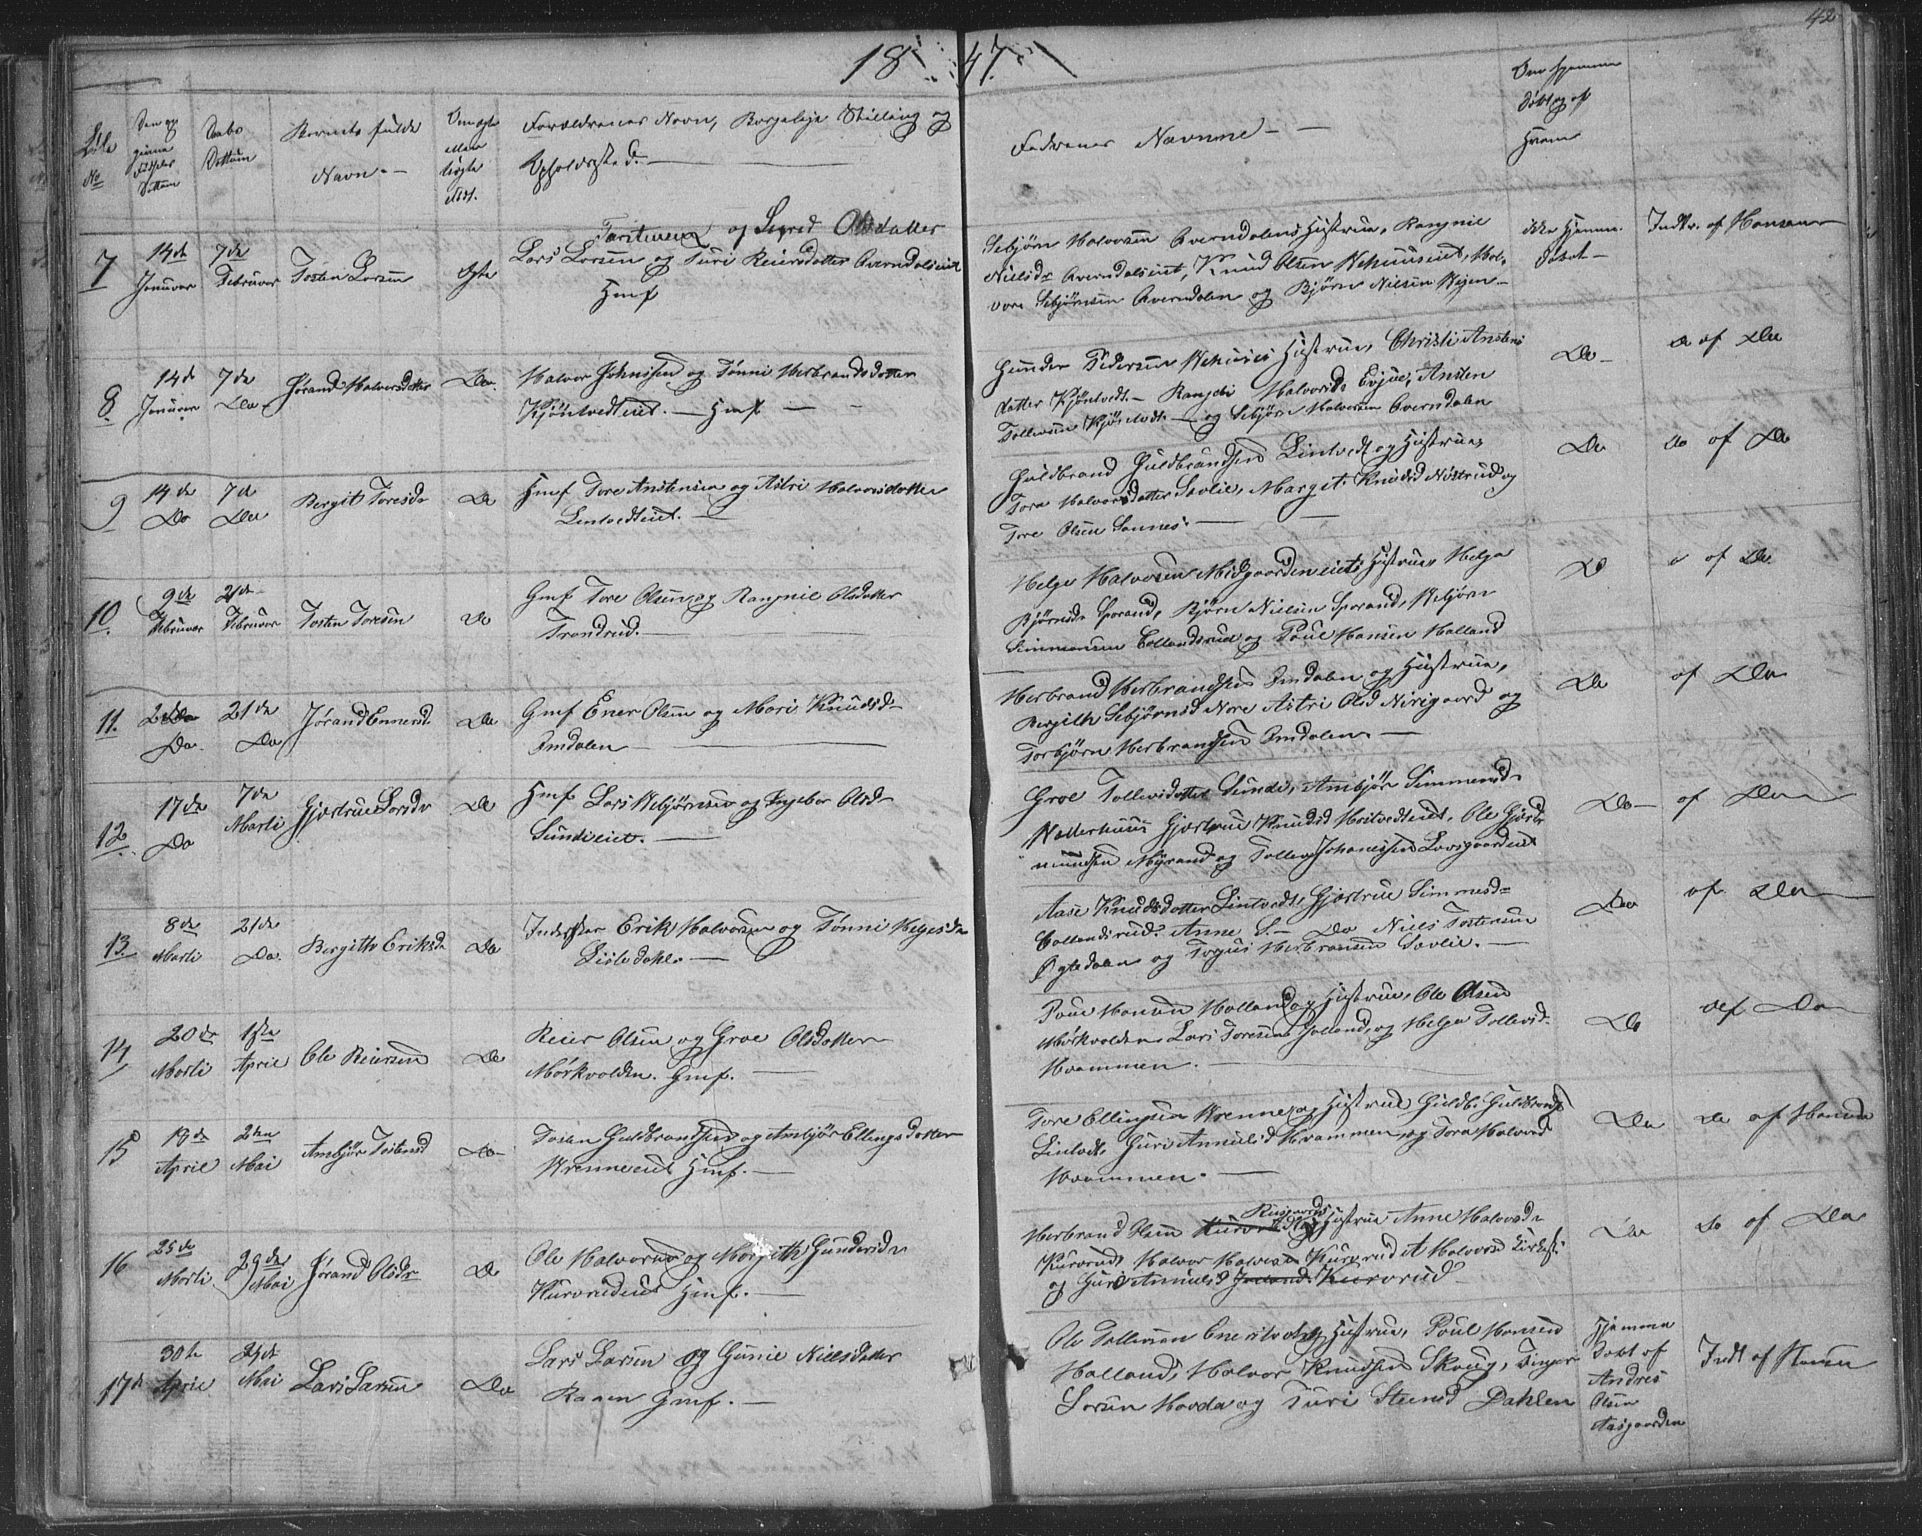 42
1847.
Løbe No
Daabs Dattum
Barnets fulde Navn. -
Forældrenes Navn, Borgelige Stilling og Opholdsted. -
Fadernes Navnne - -
Om hjemme døbt og af Hvem
7
14de Januar
7de Februar
Tosten Larsen
Ægte
Torstensen og Sigrid Olsdatter
Lars Larsen og Turi Reiersdatter Averndalseiet
Hmf
Sebjørn Halvorsen Averndalens Hustrue, Rangnil
Nielsdr Averndalseiet, Knud Olsen Hal-
vore Sebjørnsen Averndalen og Bjørn Nielsen
ikke Hjemme døbt -
Indtr. af Hansen
8.
14de Januar
7de Do
Jørand Halvorsdatter
Do.
Halvor Johnssen og Tønne Herbrandsdatter
Kjøntvedteiet. - Hmf - -
Gunder Pedersen Hustrue, Christi Anstens
datter Kjøntvedt - Rangdi Halvorsd. Evjue, Ansten
Tollevsen Kjøntvedt. - og Sebjørn Halvorsen Averndalen
Do -
af Do
9
14de Do
7de Do
Bergit Toresdr
Do
Hmf Tore Anstensen og Astri Halvorsdatter
Lintvedteiet. -
Guldbrand Guldbrandsen Lintvedt og Hustrue,
Tora Halvorsdatter Savlie, Margit Knudsd Nøstrud og
Tore Olsen Sannes. -
Do
do af Do
10.
9de Februar
21de Februar
Tosten Toresen
Do
Gmf Tore Olsen og Rangnil Olsdatter
Trondrud. -
Helge Halvorsen Midgaardeneiets Hustrue, Helga
Bjørnsdr Sporand, Bjørn Nielsen Sporand, Vebjørn
Simmonsen Collandsrud og Poul Hansen Holland
Do
af Do
11.
Do.
21de Do
Jørand Ennersd
Do
Gmf Ener Olsen og Mari Knudsd -
Imdalen -
Herbrand Herbrandsen Imdalen og Hustrue,
Bergith Sebjørnsd Nore Astri Olsd Nerigaard og
Torbjørn Herbrandsen Imdalen. -
Do
af Do
12.
17de Do
7de Marti
Gjertrue Larsdr
Do
Hmf Lars Vebjørnsen og Ingebor Olsd -
Sundeeiet. -
Groe Tollevsdatter Sunde, Ambjør Simmensd -
Gjertrue Knudsd Hvitvedteiet, Ole Gjord-
mundsen Myrand og Tollev Johanessen Lovsgaardeiet
Do -
af Do
13.
8de Marti
21de Do.
Bergitte Eriksd
Do
Inderster Erik Halvorsen og Tønne Helgesdr
Lisledahl. -
Aase Knudsdatter Lintvedt, Gjertrue Simmensd -
Collandsrud. Anne S. - Do Niels Tostensen
Øgledalen og Torgus Herbransen Savlie. -
Do
af Do
14
20de Marti
1ste April
Ole Reiersen
Do
Reier Olsen og Groe Olsdatter
Mørkvolden. Gmf. -
Poul Hansen Holland og Hustrue, Ole Olsen
Mørkvolden Lars Toresen Jolland, og Helga Tollevsd -
Hvammen. -
Do
af Do
15
13de April
2den Mai
Ambjør Tostensd
Do -
Tosten Guldbrandsen og Ambjør Ellingsdatter
Vrenneeiet Hmf. -
Tore Ellingsen Vrenne, og Hustrue, Guldbr Guldbrands
Lintvedt, Guri Annulsd Hvammen, og Tora Halvorsd
Hvammen. -
Do
do af Hansen
16
25de Marti
29de Mai
Jørand Olsdr
Do
Ole Halvorsen og Margith Gundersdr
Kurvrudeiet Hmf. -
Herbrand Olsen Hustrue Anne Halvorsd -
Kurvrud, Halvor Halvorsen Kurvrud A Halvorsd
og Guri Annulsd Kurvrud
Do
do af Do
17d
30te April
24de Mai
Lars Larsen
Do
Lars Larsen og Gunil Nielsdatter
Raaen Gmf. -
Ole Tollevsen og Hustrue, Poul Hansen
Holland, Halvor Knudsen Skoug, Finger
Larsen Hovda og Turi Steensd Dahlen
Hjemme Døbt af Andres Olsen Aasgaarden
Indt af Hansen